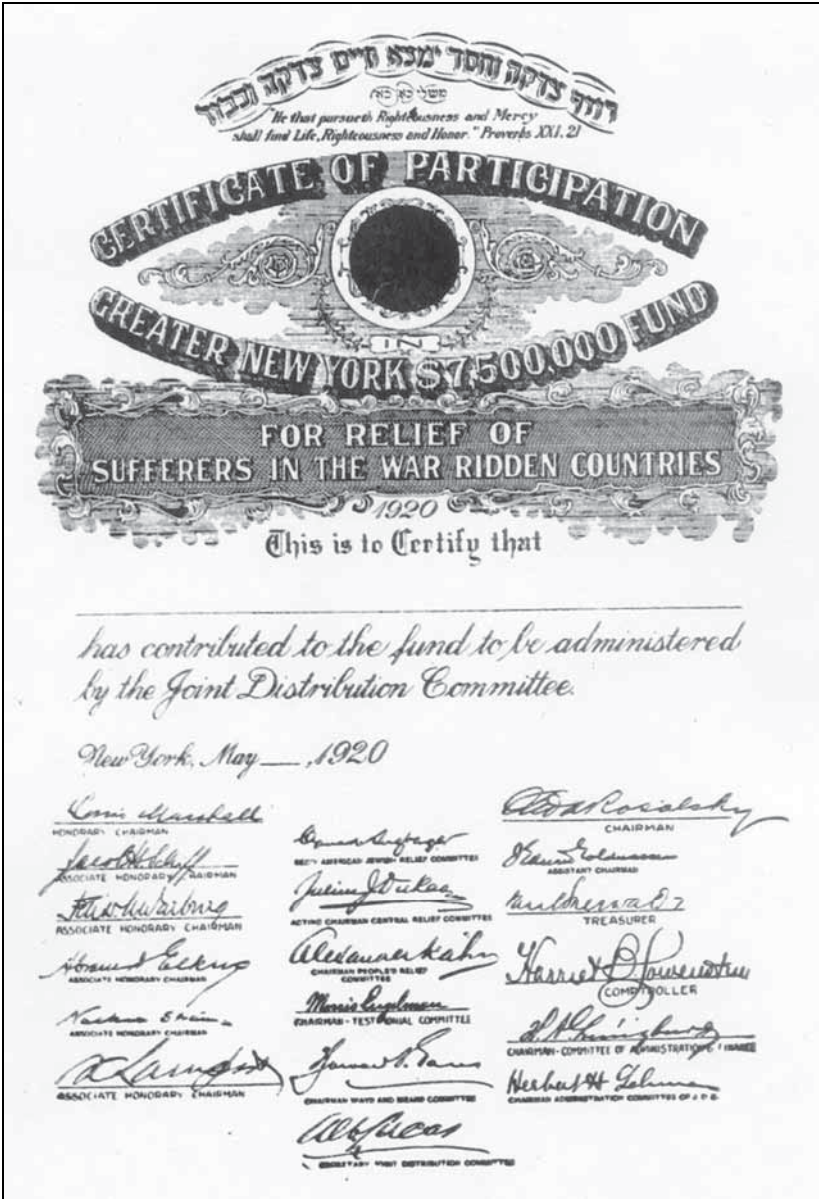 רודף צדקה וחסד ימצא חיים צדקה וכבוד
משלי כא כא
"He that pursueth Righteousness and Mercy
shall find Life, Righteousness and Honor." Proverbs XXI, 21
CERTIFICATE OF PARTICIPATION
IN
GREATER NEW YORK $7,500,000 FUND
FOR RELIEF OF
SUFFERERS IN THE WAR RIDDEN COUNTRIES
1920
This is to Certify that
has contributed to the fund to be administered
by the Joint Distribution Committee.
New York, May ___, 1920
Louis Marshall
HONORARY CHAIRMAN
Jacob H. Schiff
ASSOCIATE HONORARY CHAIRMAN
Felix M. Warburg
ASSOCIATE HONORARY CHAIRMAN
Elkus
ASSOCIATE HONORARY CHAIRMAN
ASSOCIATE HONORARY CHAIRMAN
ASSOCIATE HONORARY CHAIRMAN
SECY AMERICAN JEWISH RELIEF COMMITTEE
Julius J. Dukas
ACTING CHAIRMAN CENTRAL RELIEF COMMITTEE
Alexander Kahn
CHAIRMAN PEOPLE'S RELIEF
COMMITTEE
Morris Engelman
CHAIRMAN - TESTIMONIAL COMMITTEE
CHAIRMAN WAYS AND MEANS COMMITTEE
Alb Lucas
SECRETARY JOINT DISTRIBUTION COMMITTEE
Rosalsky
CHAIRMAN
ASSISTANT CHAIRMAN
TREASURER
Harriet B. Lowenstein
COMPTROLLER
CHAIRMAN - COMMITTEE OF ADMINISTRATION & FINANCE
Herbert H. Lehman
CHAIRMAN ADMINISTRATION COMMITTEE OF J. D. C.